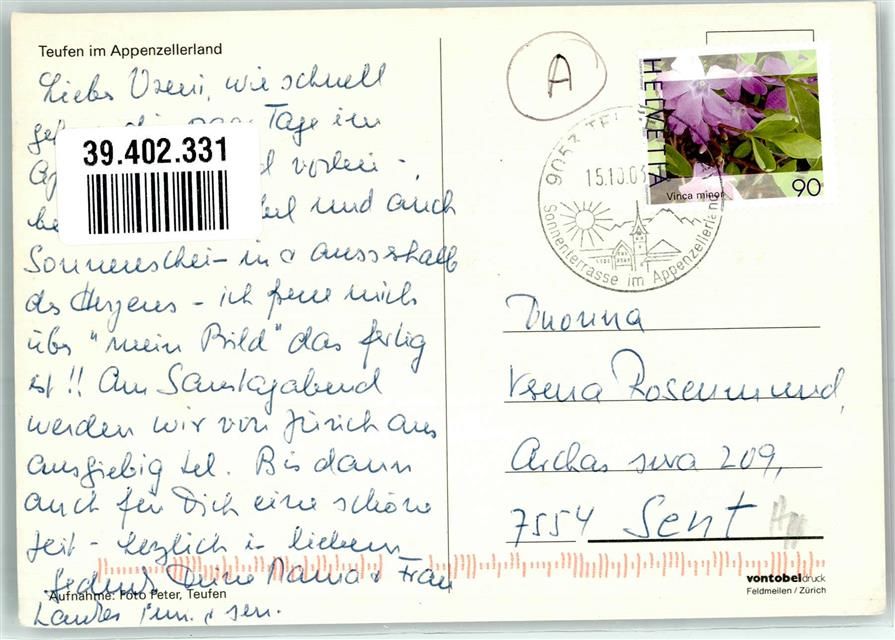 Teufen im Appenzellerland
Liebes Vreni, wie schnell
Tage im
vorbei -,
und auch
Sonnenschein in & ausserhalb
des Herzens - ich freue mich
übs "mein Bild" das fertig
ist!! Am Samstagabend
werden wir von Zürich aus
ausgiebig tel. Bis dann
auch für Dich eine schöne
Zeit - herzlich in liebem
Deine Mama & Frau
jun. & sen.
Aufnahme: Foto Peter, Teufen
39.402.331
A
HELVETIA
Vinca minor
90
9053
15.10.03
Sonnenterrasse im Appenzellerland
Duonna
Vrena Rosenmund,
Archas sura 209,
7554 Sent
vontobeldruck
Feldmeilen / Zürich